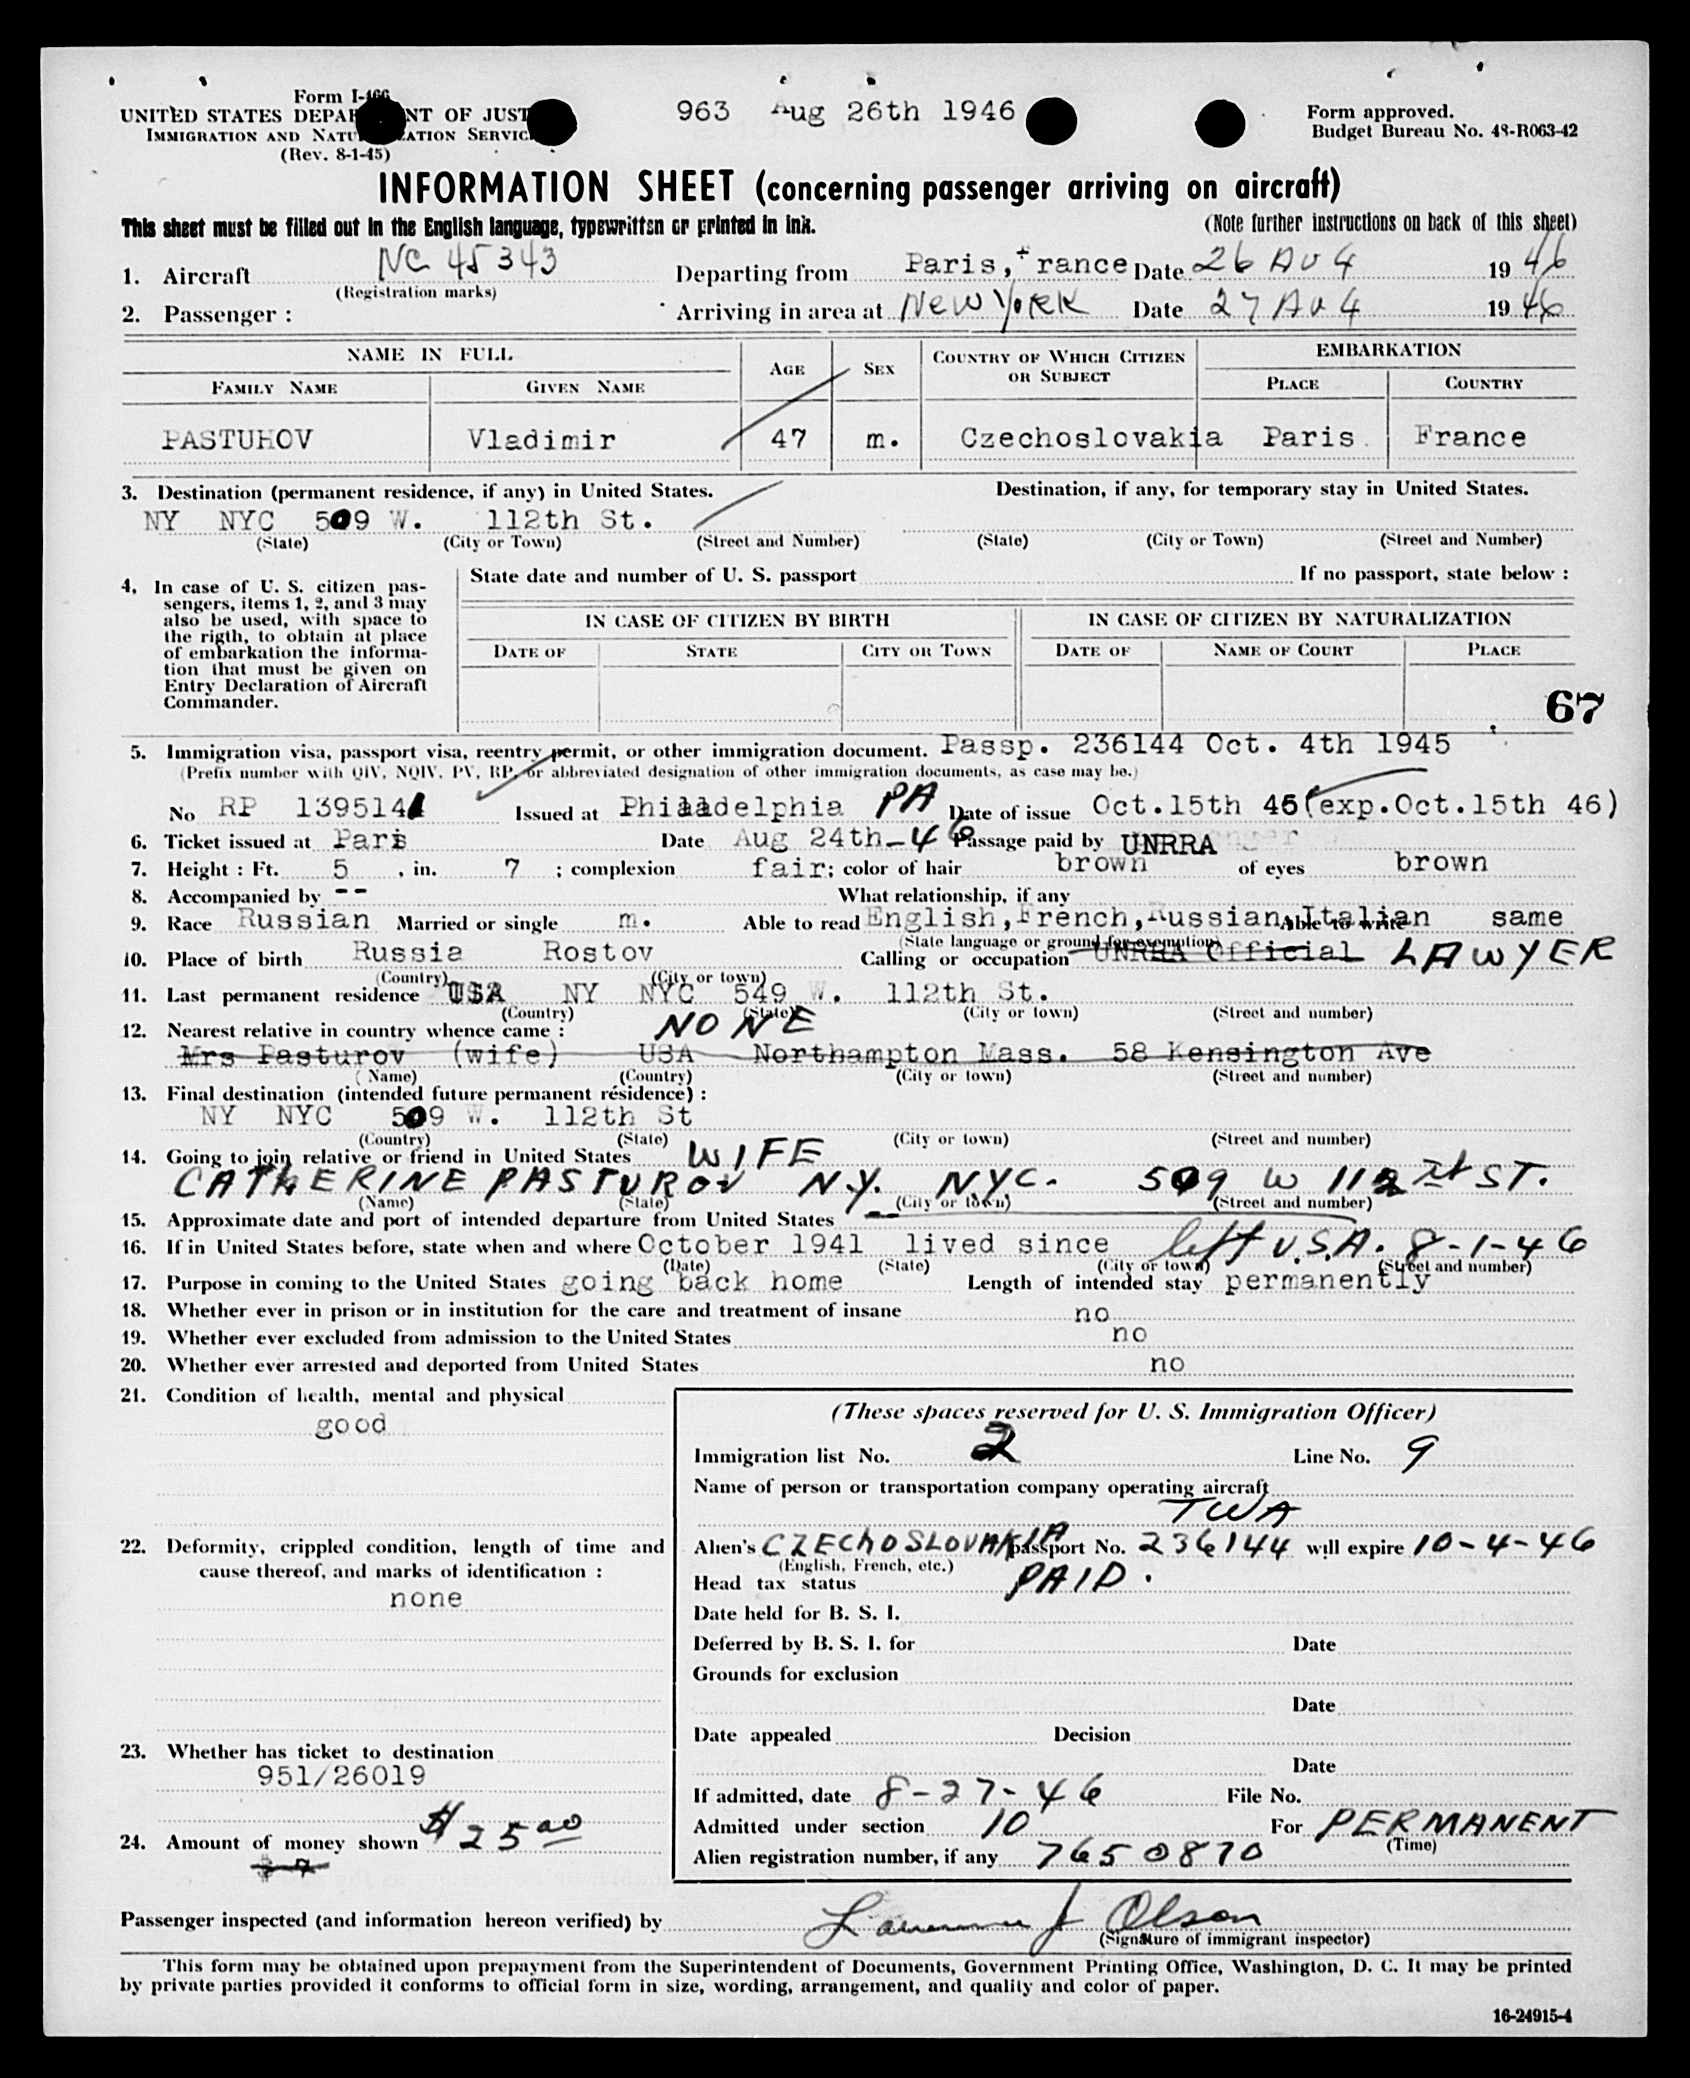 Form I-466
963 Aug 26th 1946
Form approved.
UNITED STATES DEPARTMENT OF JUSTICE
Budget Bureau No. 43-R063-42
IMMIGRATION AND NATURALIZATION SERVICE
(Rev. 8-1-45)
INFORMATION SHEET (concerning passenger arriving on aircraft)
This sheet must be filled out in the English language, typewritten or printed in ink.
(Note further instructions on back of this sheet)
1. Aircraft NC 45343 Departing from Paris, France Date 26 AUG 1946
(Registration marks)
2. Passenger : Arriving in area at New York Date 27 AUG 1946
NAME IN FULL AGE SEX COUNTRY OF WHICH CITIZEN OR SUBJECT EMBARKATION
FAMILY NAME GIVEN NAME PLACE COUNTRY
PASTUHOV Vladimir 47 m. Czechoslovakia Paris France
3. Destination (permanent residence, if any) in United States. Destination, if any, for temporary stay in United States.
NY NYC 509 W. 112th St.
(State) (City or Town) (Street and Number) (State) (City or Town) (Street and Number)
4. In case of U. S. citizen pas-
sengers, items 1, 2, and 3 may
also be used, with space to
the rigth, to obtain at place
of embarkation the informa-
tion that must be given on
Entry Declaration of Aircraft
Commander.
State date and number of U. S. passport If no passport, state below :
IN CASE OF CITIZEN BY BIRTH IN CASE OF CITIZEN BY NATURALIZATION
DATE OF STATE CITY OR TOWN DATE OF NAME OF COURT PLACE
67
5. Immigration visa, passport visa, reentry permit, or other immigration document. Passp. 236144 Oct. 4th 1945
(Prefix number with QIV, NQIV, PV, RP, or abbreviated designation of other immigration documents, as case may be.)
No RP 1395141 Issued at Philadelphia PA Date of issue Oct.15th 45(exp.Oct.15th 46)
6. Ticket issued at Paris Date Aug 24th-46 Passage paid by UNRRA
7. Height : Ft. 5 , in. 7 ; complexion fair; color of hair brown of eyes brown
8. Accompanied by -- What relationship, if any
9. Race Russian Married or single m. Able to read English,French,Russian,Italian Able to write same
(State language or ground for exemption)
10. Place of birth Russia Rostov Calling or occupation UNRRA Official LAWYER
(Country) (City or town)
11. Last permanent residence USA NY NYC 549 W. 112th St.
(Country) (State) (City or town) (Street and number)
12. Nearest relative in country whence came : NONE
Mrs Pasturov (wife) USA Northampton Mass. 58 Kensington Ave
(Name) (Country) (City or town) (Street and number)
13. Final destination (intended future permanent résidence) :
NY NYC 509 W. 112th St
(Country) (State) (City or town) (Street and number)
14. Going to join relative or friend in United States WIFE
CATHERINE PASTUROV N.Y. NYC. 509 W 112 ST.
(Name) (State) (City or town) (Street and number)
15. Approximate date and port of intended departure from United States --
16. If in United States before, state when and where October 1941 lived since left U.S.A. 8-1-46
(Date) (State) (City or town) (Street and number)
17. Purpose in coming to the United States going back home Length of intended stay permanently
18. Whether ever in prison or in institution for the care and treatment of insane no
19. Whether ever excluded from admission to the United States no
20. Whether ever arrested and deported from United States no
21. Condition of health, mental and physical
good
22. Deformity, crippled condition, length of time and
cause thereof, and marks of identification :
none
23. Whether has ticket to destination
951/26019
24. Amount of money shown $25.00
(These spaces reserved for U. S. Immigration Officer)
Immigration list No. 2 Line No. 9
Name of person or transportation company operating aircraft
TWA
Alien's CZECHOSLOVAKIA passport No. 236144 will expire 10-4-46
(English, French, etc.)
Head tax status PAID.
Date held for B. S. I.
Deferred by B. S. I. for Date
Grounds for exclusion
Date
Date appealed Decision
Date
If admitted, date 8-27-46 File No.
Admitted under section 10 For PERMANENT
(Time)
Alien registration number, if any 7650870
Passenger inspected (and information hereon verified) by Lawrence J Olson
(Signature of immigrant inspector)
This form may be obtained upon prepayment from the Superintendent of Documents, Government Printing Office, Washington, D. C. It may be printed
by private parties provided it conforms to official form in size, wording, arrangement, and quality and color of paper.
16-24915-4